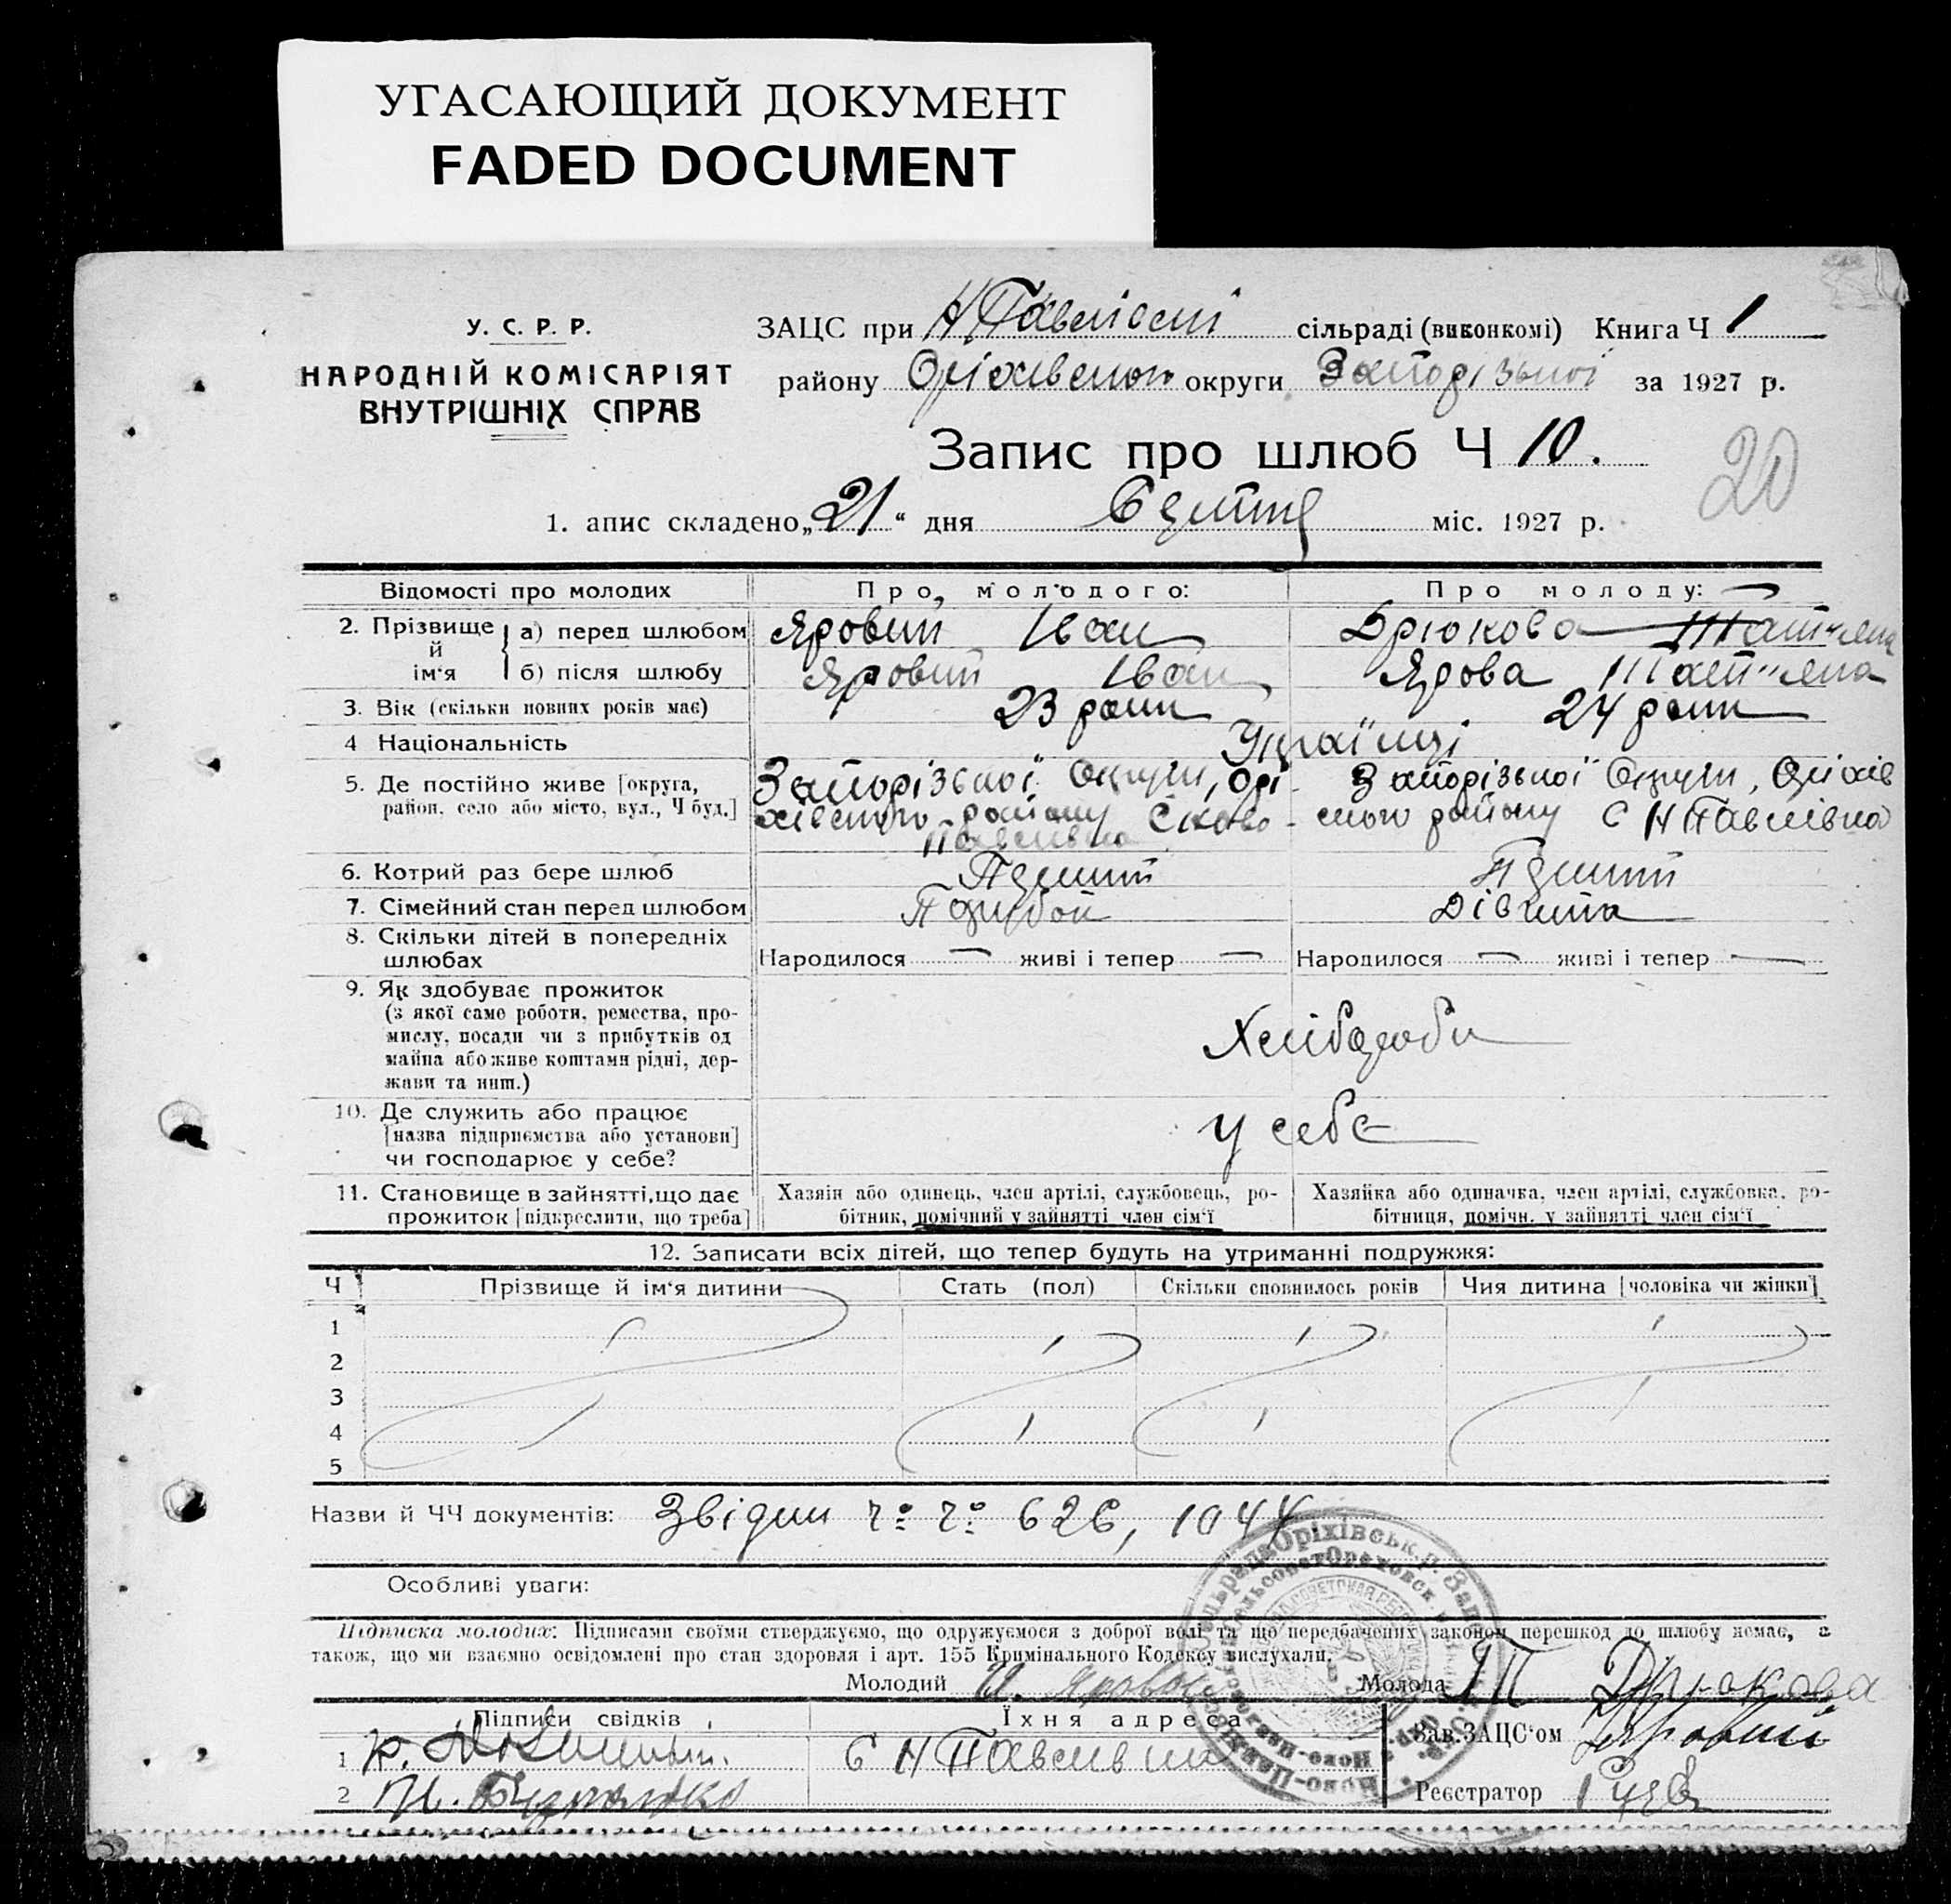 УГАСАЮЩИЙ ДОКУМЕНТ
FADED DOCUMENT
У. С. Р. Р.
НАРОДНІЙ КОМІСАРІЯТ
ВНУТРІШНІХ СПРАВ
ЗАЦС при Н Павлівській сільраді (виконкомі) Книга Ч 1
району Оріхівського округи Запорізької за 1927 р.
Запис про шлюб Ч 10.
20
1. апис складено „21“ дня Січня міс. 1927 р.
Відомості про молодих Про молодого: Про молоду:
2. Прізвище й ім‘я а) перед шлюбом Яровий Іван Дрюкова Тать‘яна
б) після шлюбу Яровий Іван Ярова Тать‘яна
3. Вік (скільки повних років має) 23 роки 24 роки
4 Національність Українці
5. Де постійно живе [округа, район, село або місто, вул., Ч буд.] Запорізької Округи, Орі-хівського району Село Ново-Павлівка Запорізької Округи, Оріхівського району С Н Павлівка
6. Котрий раз бере шлюб Перший Перший
7. Сімейний стан перед шлюбом Парубок Дівчина
8. Скільки дітей в попередніх шлюбах Народилося — живі і тепер — Народилося — живі і тепер —
9. Як здобуває прожиток
(з якої саме роботи, ремества, про-
мислу, посади чи з прибутків од
майна або живе коштами рідні, дер-
жави та инш.) Хлібороби
10. Де служить або працює
[назва підприємства або установи]
чи господарює у себе? у себе
11. Становище в зайнятті, що дає прожиток [підкреслити, що треба]
Хазяін або одинець, член артілі, службовець, ро-
бітник, помічний у зайнятті член сім‘ї
Хазяйка або одиначка, член артілі, службовка, ро-
бітниця, помічн. у зайнятті член сім‘ї
12. Записати всіх дітей, що тепер будуть на утриманні подружжя:
Ч Прізвище й ім‘я дитини Стать (пол) Скільки сповнилось років Чия дитина [чоловіка чи жінки]
1
2
3
4
5
Назви й ЧЧ документів: Звідки ч. ч. 626, 1044
Особливі уваги:
Підписка молодих: Підписами своїми стверджуємо, що одружуємося з доброї волі та що передбачених законом перешкод до шлюбу немає, а
також, що ми взаємно освідомлені про стан здоровля і арт. 155 Кримінального Кодексу вислухали.
Молодий И. Яровой Молода Т Дрюкова
Підписи свідків Їхня адреса Зав. ЗАЦС‘ом Яровий
1 С Н Павлівка
2 Реєстратор